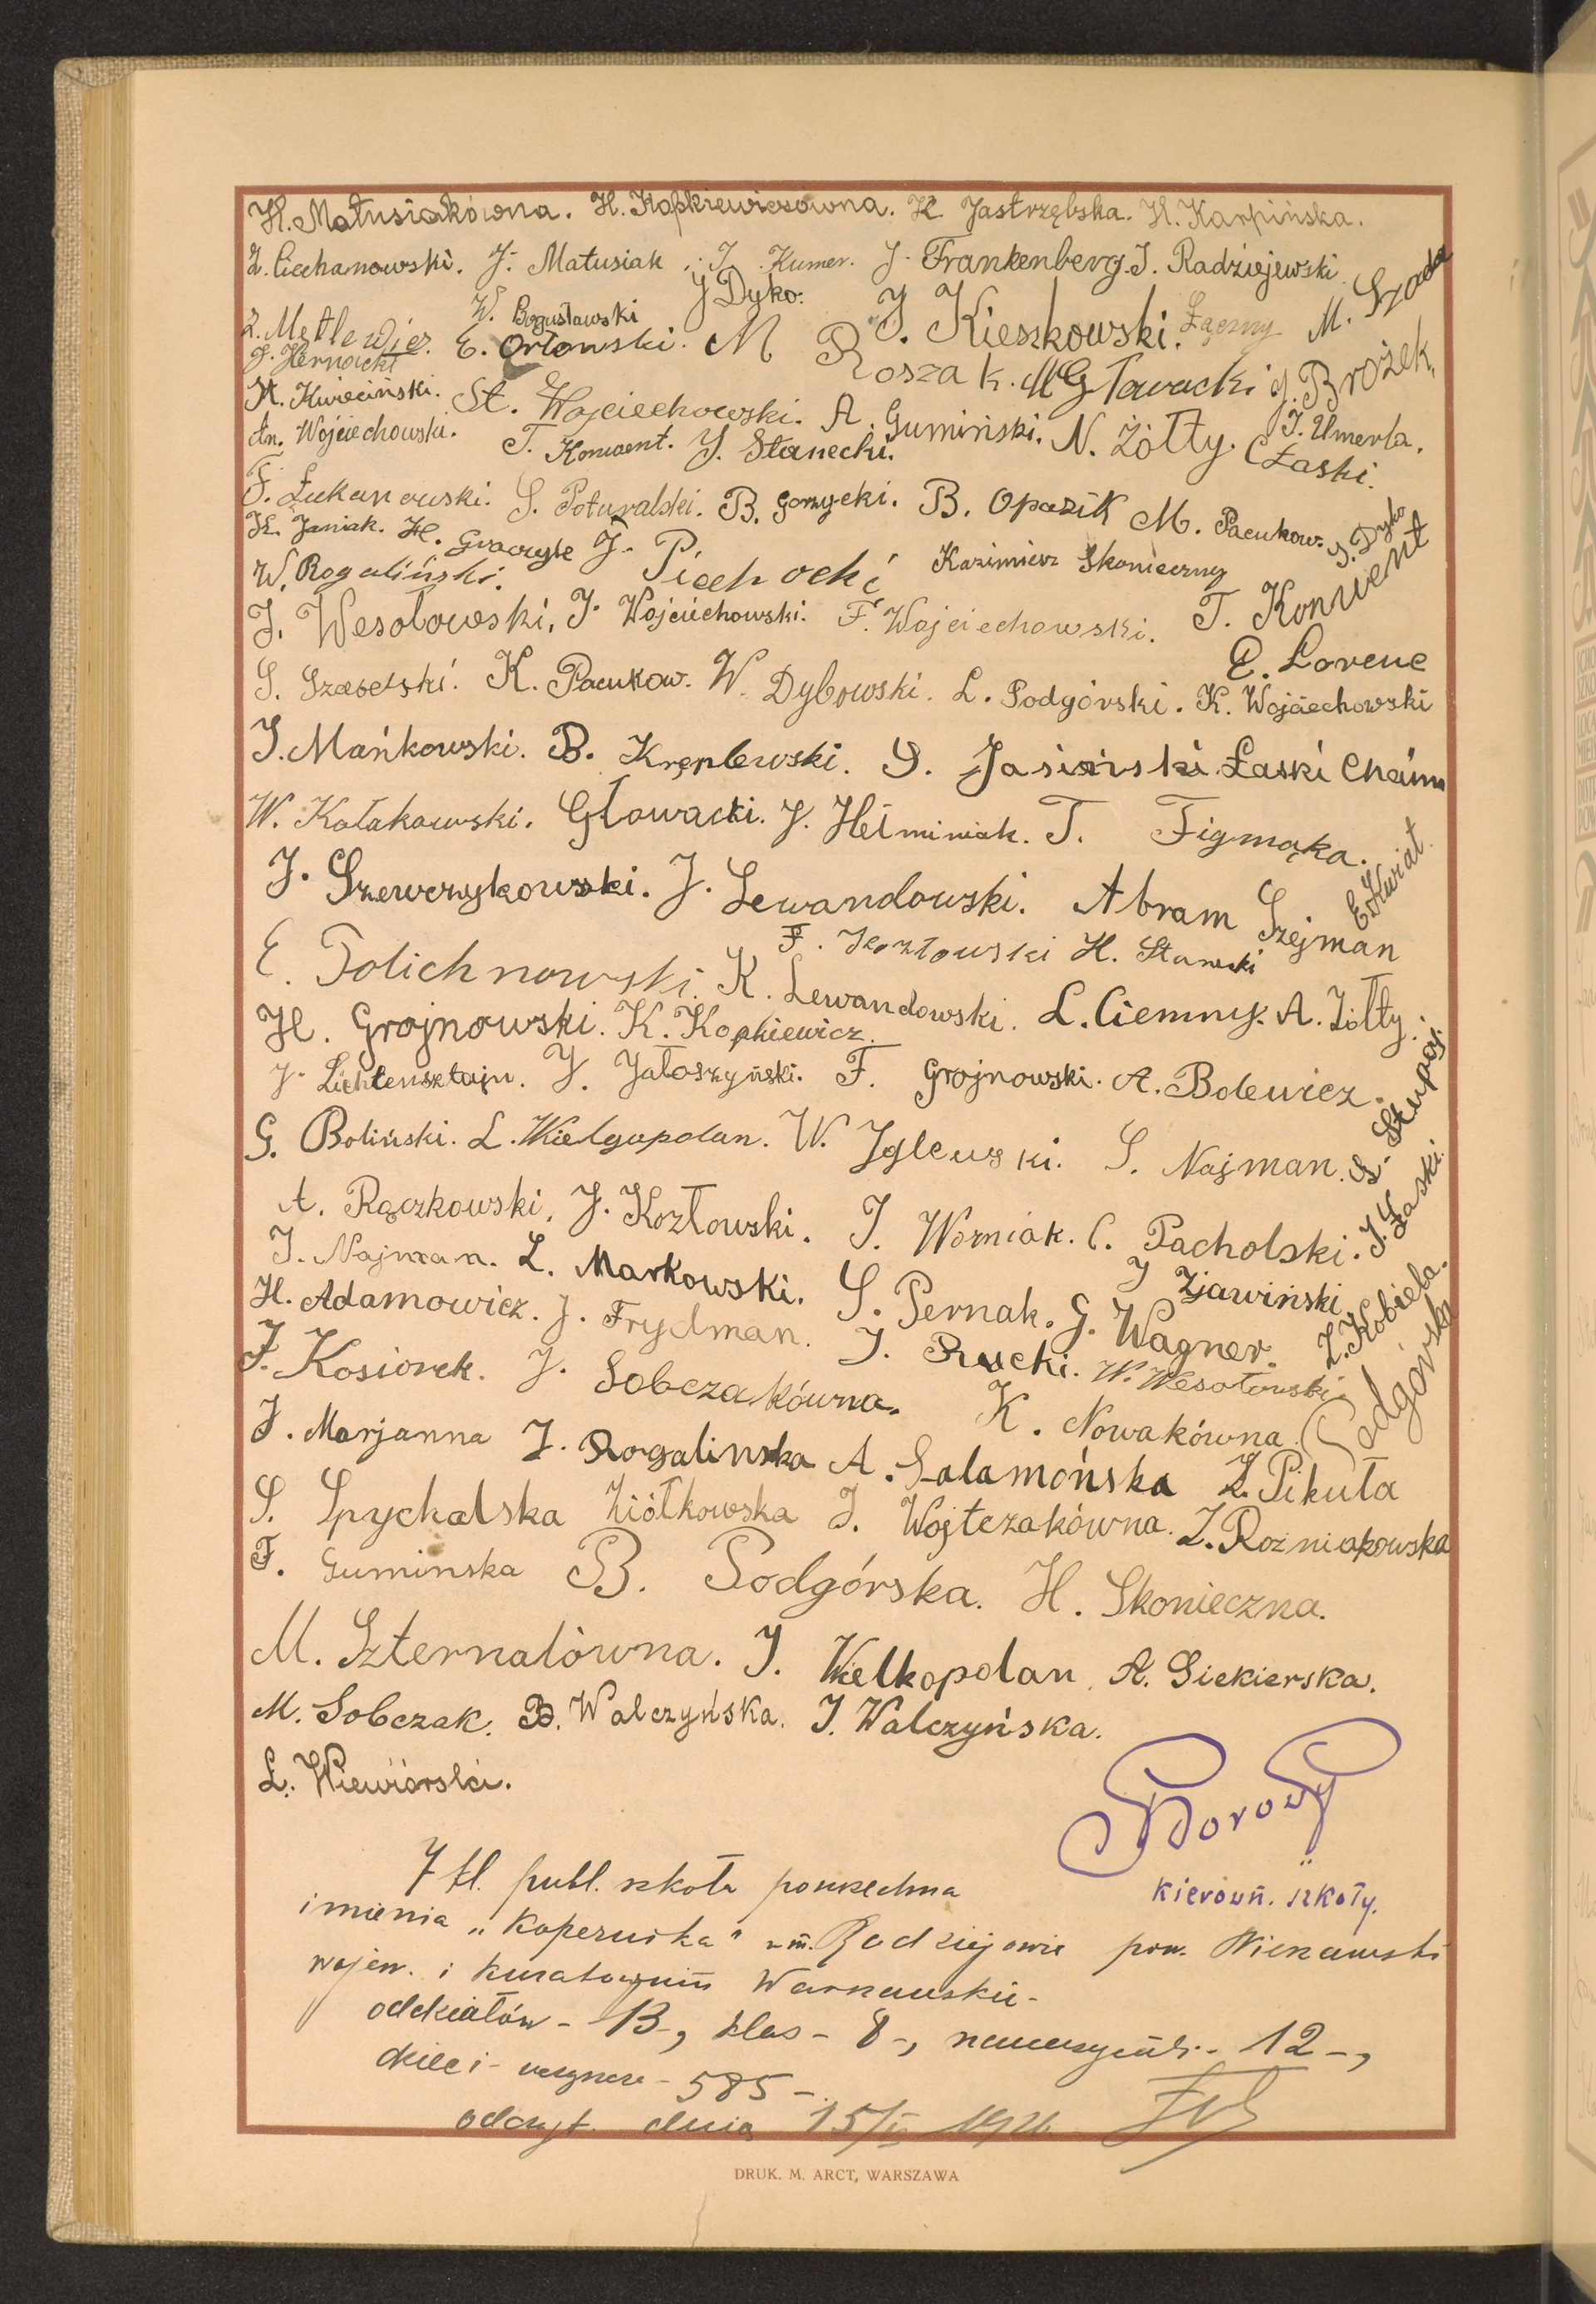 H. Matusiakówna. H. Kopkiewiczówna. K Jastrzębska. H. Karpińska.
Z. Ciechanowski. J. Matusiak. J. Kumer. J. Frankenberg. J. Radziejewski
W. Bogusławski J Dyko. J. Kieszkowski. Łączny M. Szoda
Z. Mętlewicz. E. Orłowski. M Roszak. M Głowacki J. Brożek
J. Hernacki
St. Kwieciński. St. Wojciechowski. A. Gumiński. N. Żółty. J. Umerla.
An. Wojciechowski. T. Konwent. J. Stanecki. C Łaski.
F. Łukanowski. S. Poturalski. B. Gorzycki. B. Opasik M. Pacukow. S. Dyko
K. Janiak. H. J. Piechocki Kazimierz Skonieczny
W. Rogaliński.
J. Wesołowski. J. Wojciechowski. F. Wojciechowski. T. Konwent
E. Lorenc
S. K. Pacukow. W. Dybowski. L. Podgórski. K. Wojciechowski
J. Mańkowski. B. Kręplewski. S. Jasiński Łaski Chaim
W. Kołakowski. Głowacki. J. Helminiak. T. Figmąka.
J. Szewczykowski. J. Lewandowski. Abram Szejman E. Kwiat.
F. Kozłowski H. Stanecki
E. Polichnowski. K. Lewandowski. L. Ciemny. A. Żółty.
H. Grojnowski. K. Kopkiewicz.
J. Lichtensztajn. J. Jałoszyński. F. Grojnowski. A. Bolewicz.
G. Boliński. L. Wielgopolan. W. Iglewski. S. Najman. S. Słupaj.
A. Rączkowski. J. Kozłowski. J. Woźniak. C. Pacholski. J. Łaski.
J. Najman. L. Markowski. S. Pernak. J Zjawiński
H. Adamowicz. J. Frydman. J. Rucki. G. Wagner. Z. Kobiela.
J. Kosiorek. J. Sobczakówna. W. Wesołowski.
K. Nowakówna. Podgórski
J. Marjanna J. Rogalinska A. Salamońska Z. Pikuła
S. Spychalska Ziółkowska J. Wojtczakówna. Z. Rozniakowska
F. Guminska B. Podgórska. H. Skonieczna.
M. Szternalówna. J. Wielkopolan. A. Siekierska.
M. Sobczak. B. Walczyńska. J. Walczyńska.
L. Wiewiórski.
kierown. szkoły.
7 kl. publ. szkoła powszechna
imienia „Kopernika" w m. Radziejowie pow. Nieszawski
wojew. i kuratorjum Warszawskie-
oddziałów - 13-, klas - 8 -, nauczycieli - 12 -,
dzieci - 585 -
dnia 15/
DRUK. M. ARCT, WARSZAWA